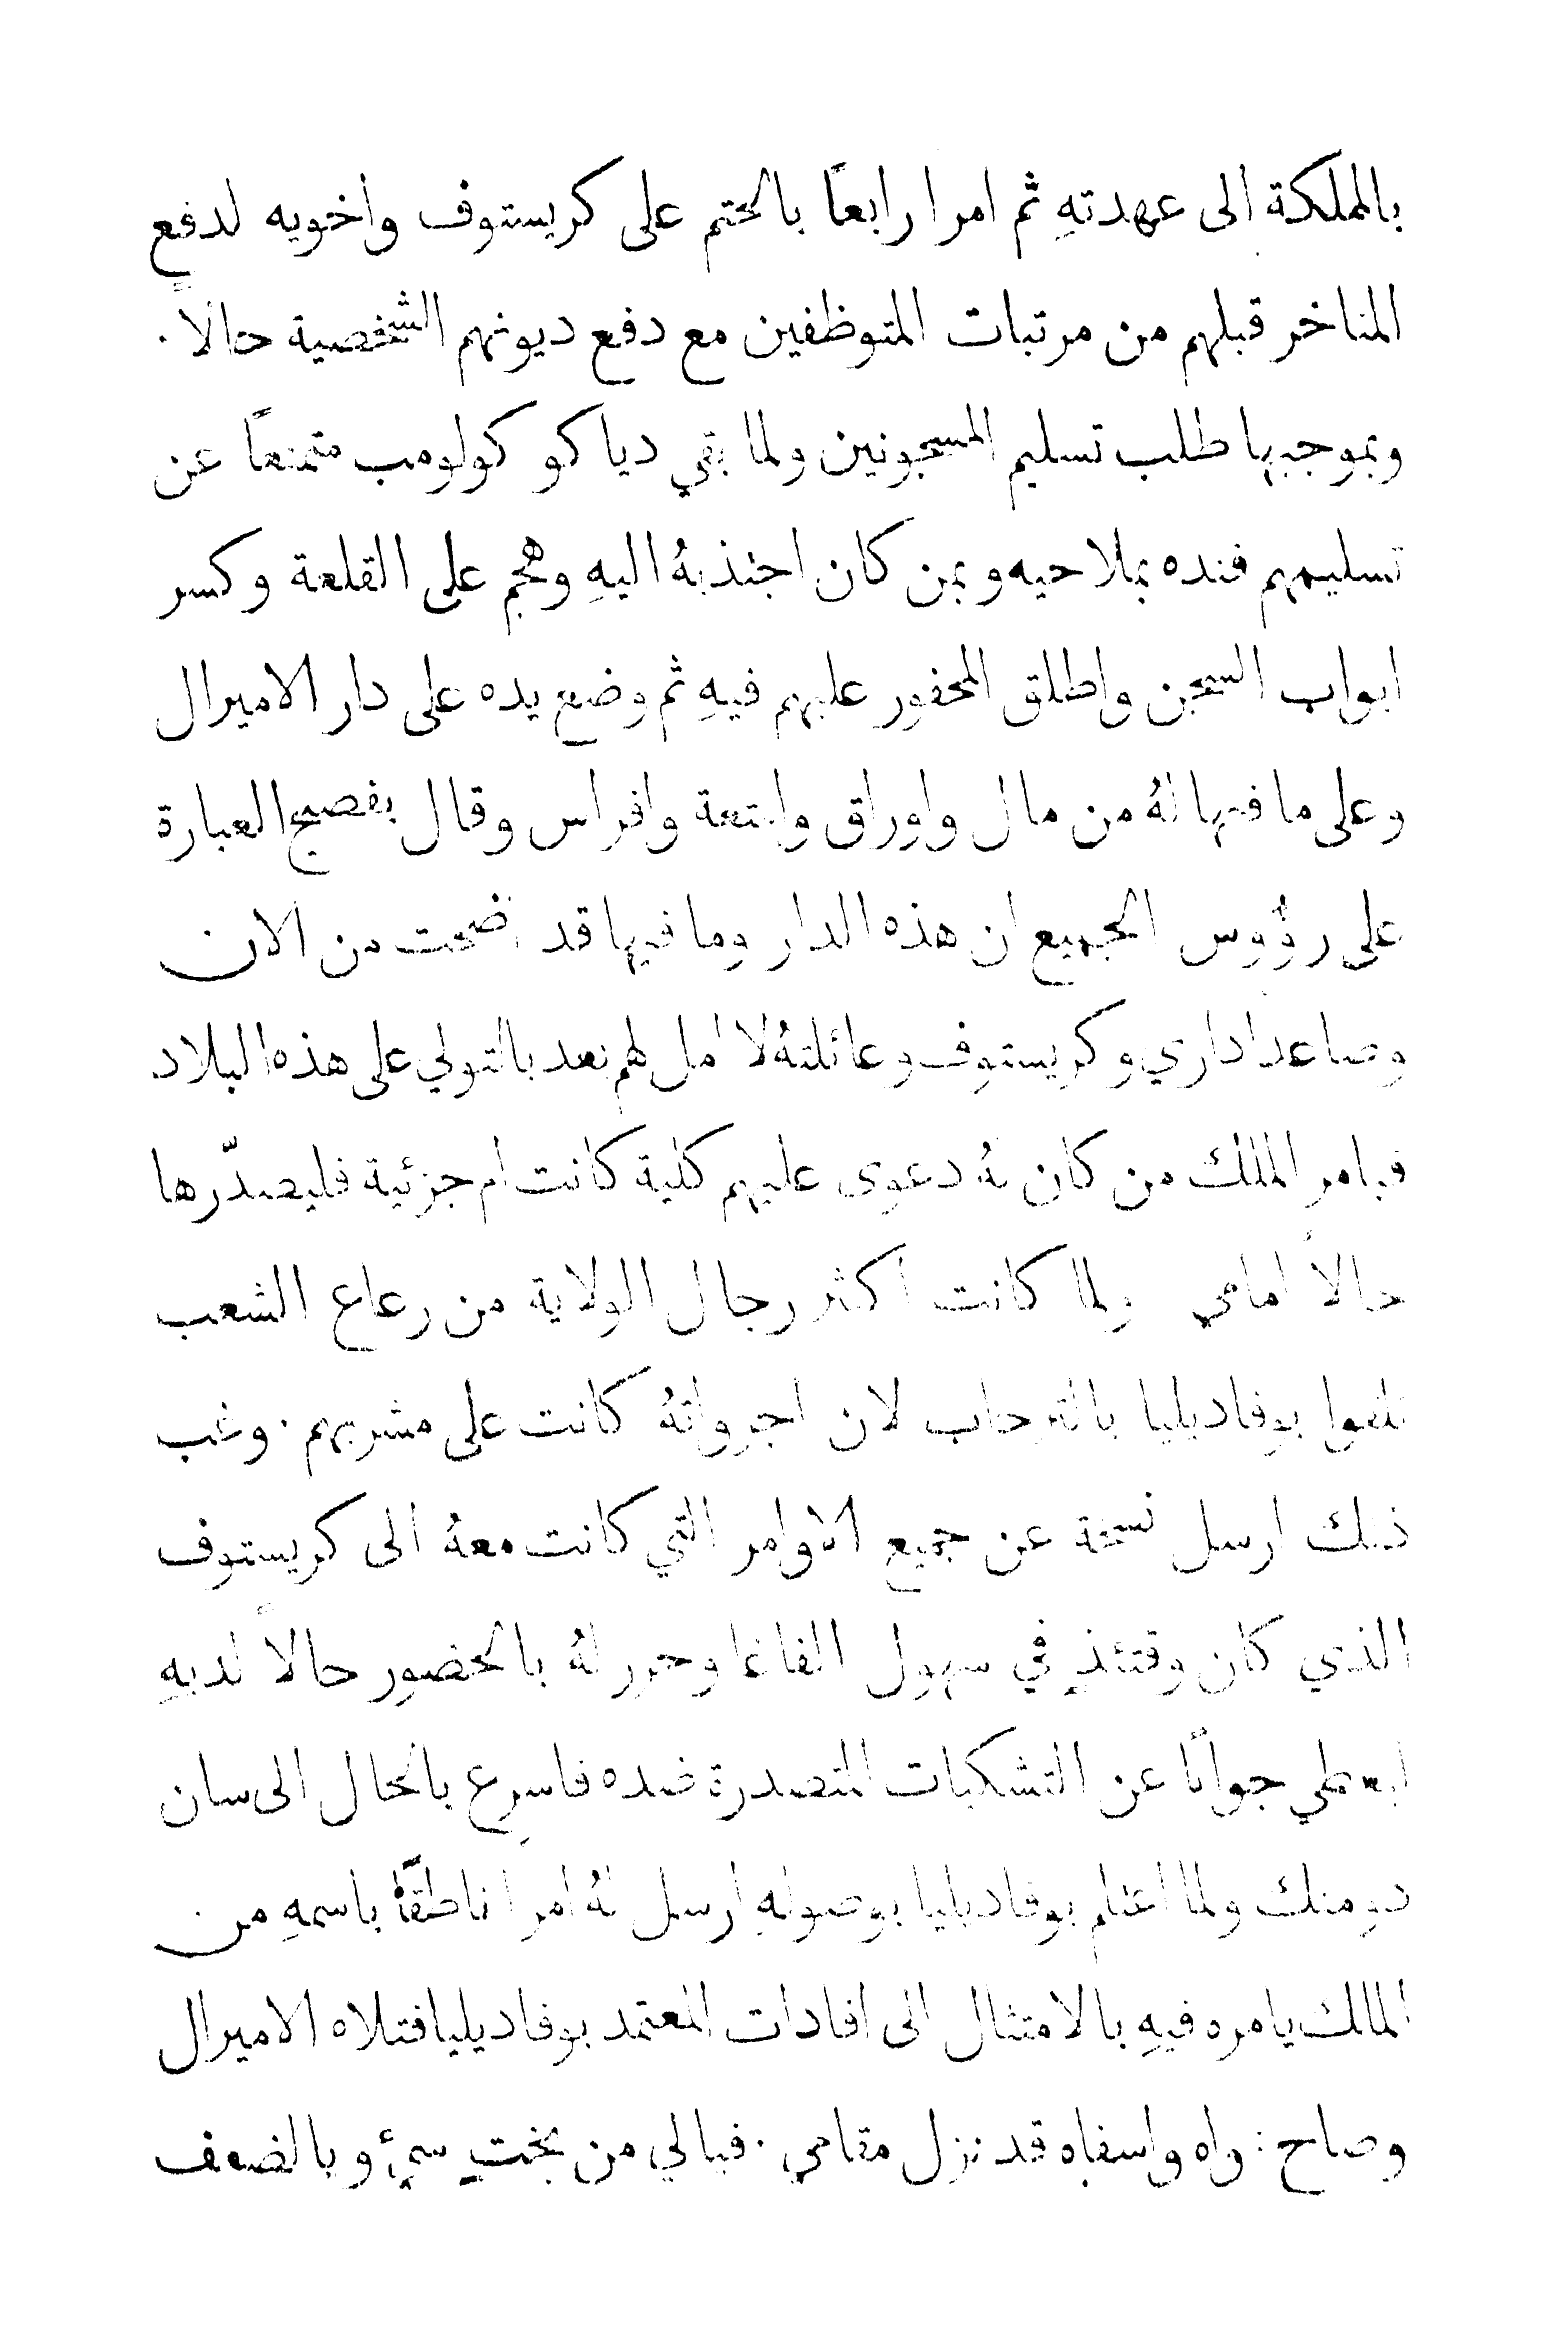 بالمملكة الى عهدتهِ ثم امرا رابعًا بالختم على كريستوف واخويه لدفع
المتاخر قبلهم من مرتبات المتوظفين مع دفع ديونهم الشخصية حالاً .
وبموجبها طلب تسليم المسجونين ولما بقي دياكو كولومب متمنعًا عن
تسليمهم فنده بملاحيه وبمن كان اجتذبهُ اليهِ وهجم على القلعة وكسر
ابواب السجن واطلق المخفور عليهم فيهِ ثم وضع يده على دار الاميرال
وعلى ما فيها لهُ من مال واوراق وامتعة وافراس وقال بفصيح العبارة
على رؤُوس الجميع ان هذه الدار وما فيها قد اضحت من الان
وصاعدا داري وكريستوف وعائلتهُ لا امل لهم بعد بالتولي على هذه البلاد
فبامر الملك من كان لهُ دعوى عليهم كلية كانت ام جزئية فليصدّرها
حالاً امامي ولما كانت اكثر رجال الولاية من رعاع الشعب
تلقوا بوفاديليا بالترحاب لان اجرواتهُ كانت على مشربهم . وغب
ذلك ارسل نسخة عن جميع الاوامر التي كانت معهُ الى كريستوف
الذي كان وقتئذٍ في سهول الفاغا وحرر لهُ بالحضور حالاً لديهِ
ليعطي جوابًا عن التشكيات المتصدرة ضده فاسرع بالحال الى سان
دومنك ولما اعتلم بوفاديليا بوصولهِ ارسل لهُ امرا ناطقًا باسمهِ من
المالك يامره فيهِ بالامتثال الى افادات المعتمد بوفاديليا فتلاه الاميرال
وصاح : واه واسفاه قد نزل مقامي . فيالي من بختٍ سيءٍ وبالضعف